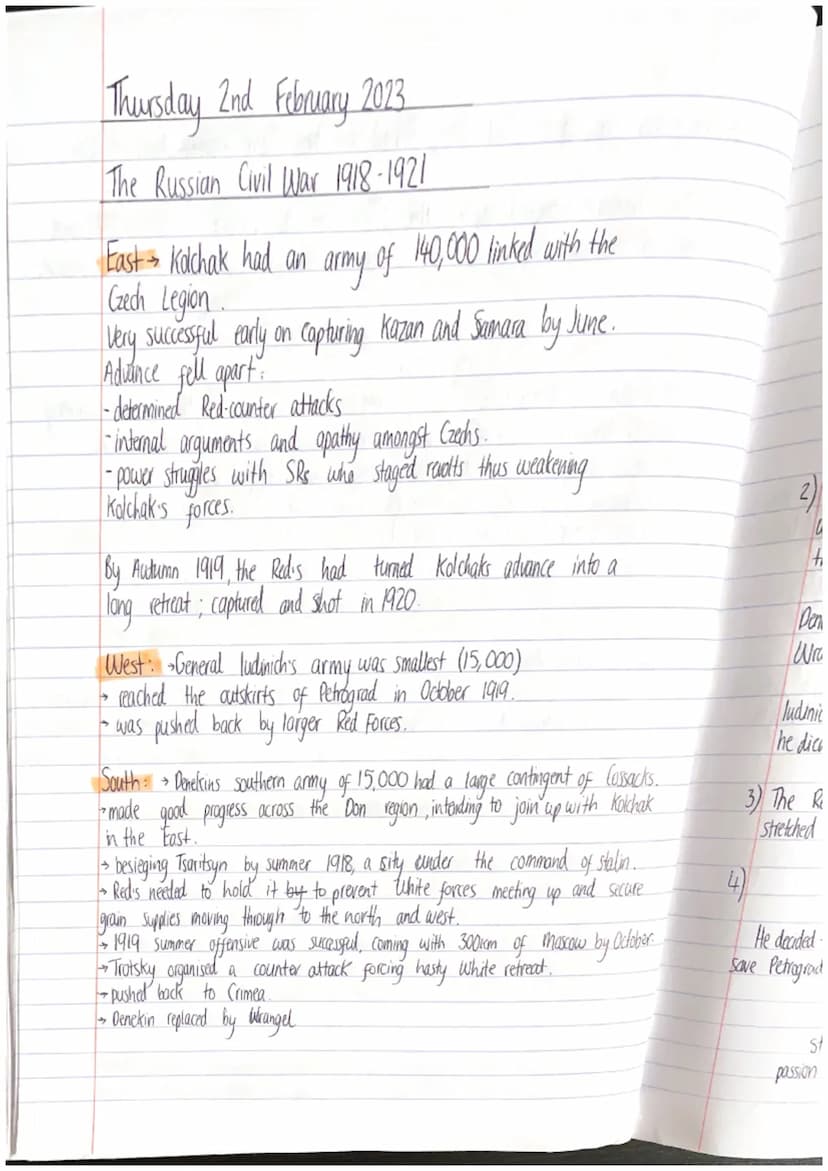 Thursday 2nd February 2023
The Russian Civil War 1918-1921
East → Kolchak had an army of 140,000 linked with the
Czech Legion.
Very successful early on capturing Kazan and Samara by June.
Advance fell apart:
- determined Red-counter attacks
- internal arguments and apathy amongst Czechs.
- power struggles with SRs who staged revolts thus weakening
Kolchak's forces.
By Autumn 1919, the Red's had turned Kolchaks advance into a
long retreat; captured and shot in 1920.
West: → General Iudinich's army was smallest (15,000)
→ reached the outskirts of Petrograd in October 1919.
→ was pushed back by larger Red Forces.
South: → Denekins southern army of 15,000 had a large contingent of Cossacks.
→ made good progress across the Don region, intending to join up with Kolchak
in the East.
→ besieging Tsaritsyn by summer 1918, a sity under the command of stalin.
→ Red's needed to hold it by to prevent White forces meeting up and secure
grain supplies moving through to the north and west.
→ 1919 summer offensive was sucessful, coming with 300km of Moscow by October.
→ Trotsky organised a counter attack forcing hasty White retreat.
→ pushed back to Crimea.
→ Denekin replaced by Wrangel
2)
Den
Wra
Iudinic
he dic
3) The Re
stretched
4)
He decided
save Petrograd
st
passion